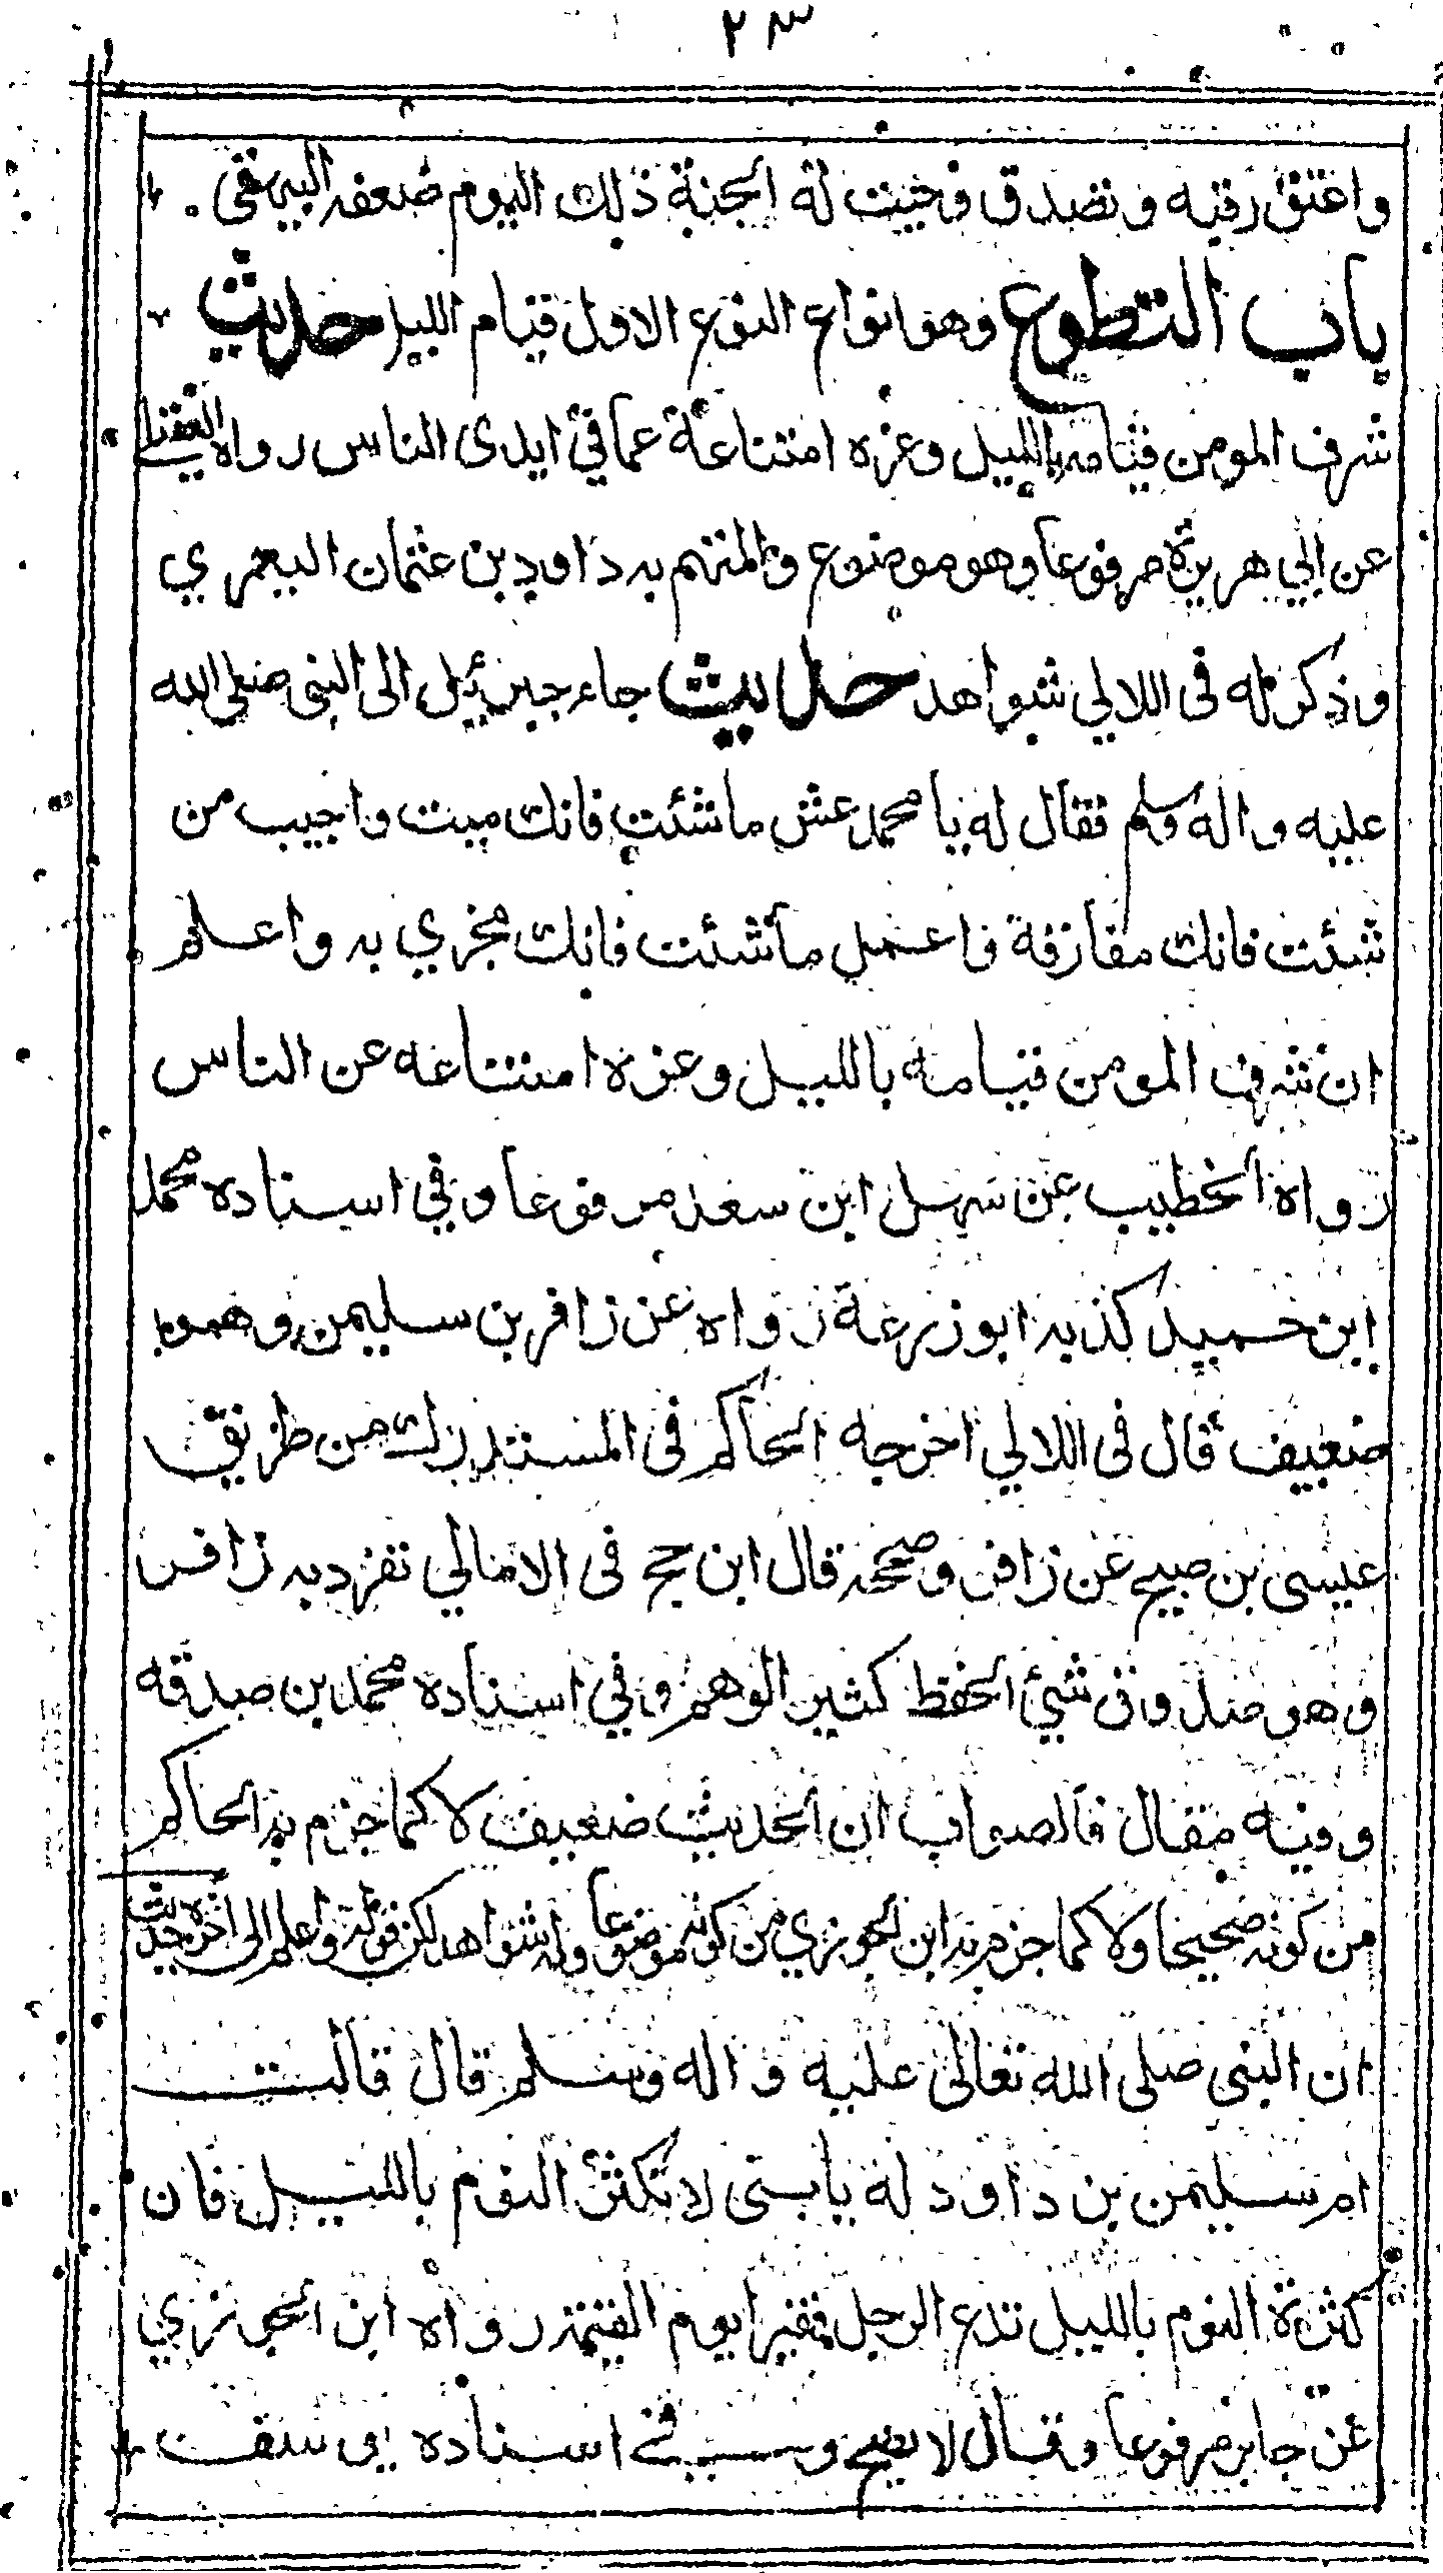 ٢٣
واعتق رقبه وتصدق وجبت له الجنة ذلك اليوم ضعفه البيهقي
باب التطوع وهو انواع النوع الاول قيام الليل حديث
شرف المومن قيامه بالليل وعزه امتناعة عما في ايدى الناس رواه العقيلي
عن ابي هريرة مرفوعا وهو موضوع والمتهم به داود بن عثمان اليعمري
وذكر له فى اللالي شواهد حديث جاء جبريئل الى النبى صلى الله
عليه واله وسلم فقال له يا محمد عش ما شئت فانك ميت واحبب من
شئت فانك مفارقة واعمل ما شئت فانك مجزي به واعلم
ان شرف المومن قيامه بالليل وعزه امتناعه عن الناس
رواه الخطيب عن سهل ابن سعد مرفوعا وفي اسناده محمد
ابن حميد كذبه ابو زرعة رواه عن زافر بن سليمن وهو
ضعيف قال فى اللالي اخرجه الحاكم فى المستدرك من طريق
عيسى بن صبيح عن زافر وصححه قال ابن حجر فى الامالي تفرد به زافر
وهو صدوق شيئ الحفظ كثير الوهم وفي اسناده محمد بن صدقه
وفيه مقال فالصواب ان الحديث ضعيف لا كما جزم به الحاكم
من كونه صحيحا ولا كما جزم به ابن الجوزي من كونه موضوعا وله شواهد لكن قوله واعلم الى اخره حديث
ان النبى صلى الله تعالى عليه واله وسلم قال قالت
ام سليمن بن داود له يا بنى لا تكثر النوم بالليل فان
كثرة النوم بالليل تدع الرجل فقيرا يوم القيمة رواه ابن الجوزي
عن جابر مرفوعا وقال لا يصح وفي اسناده يوسف